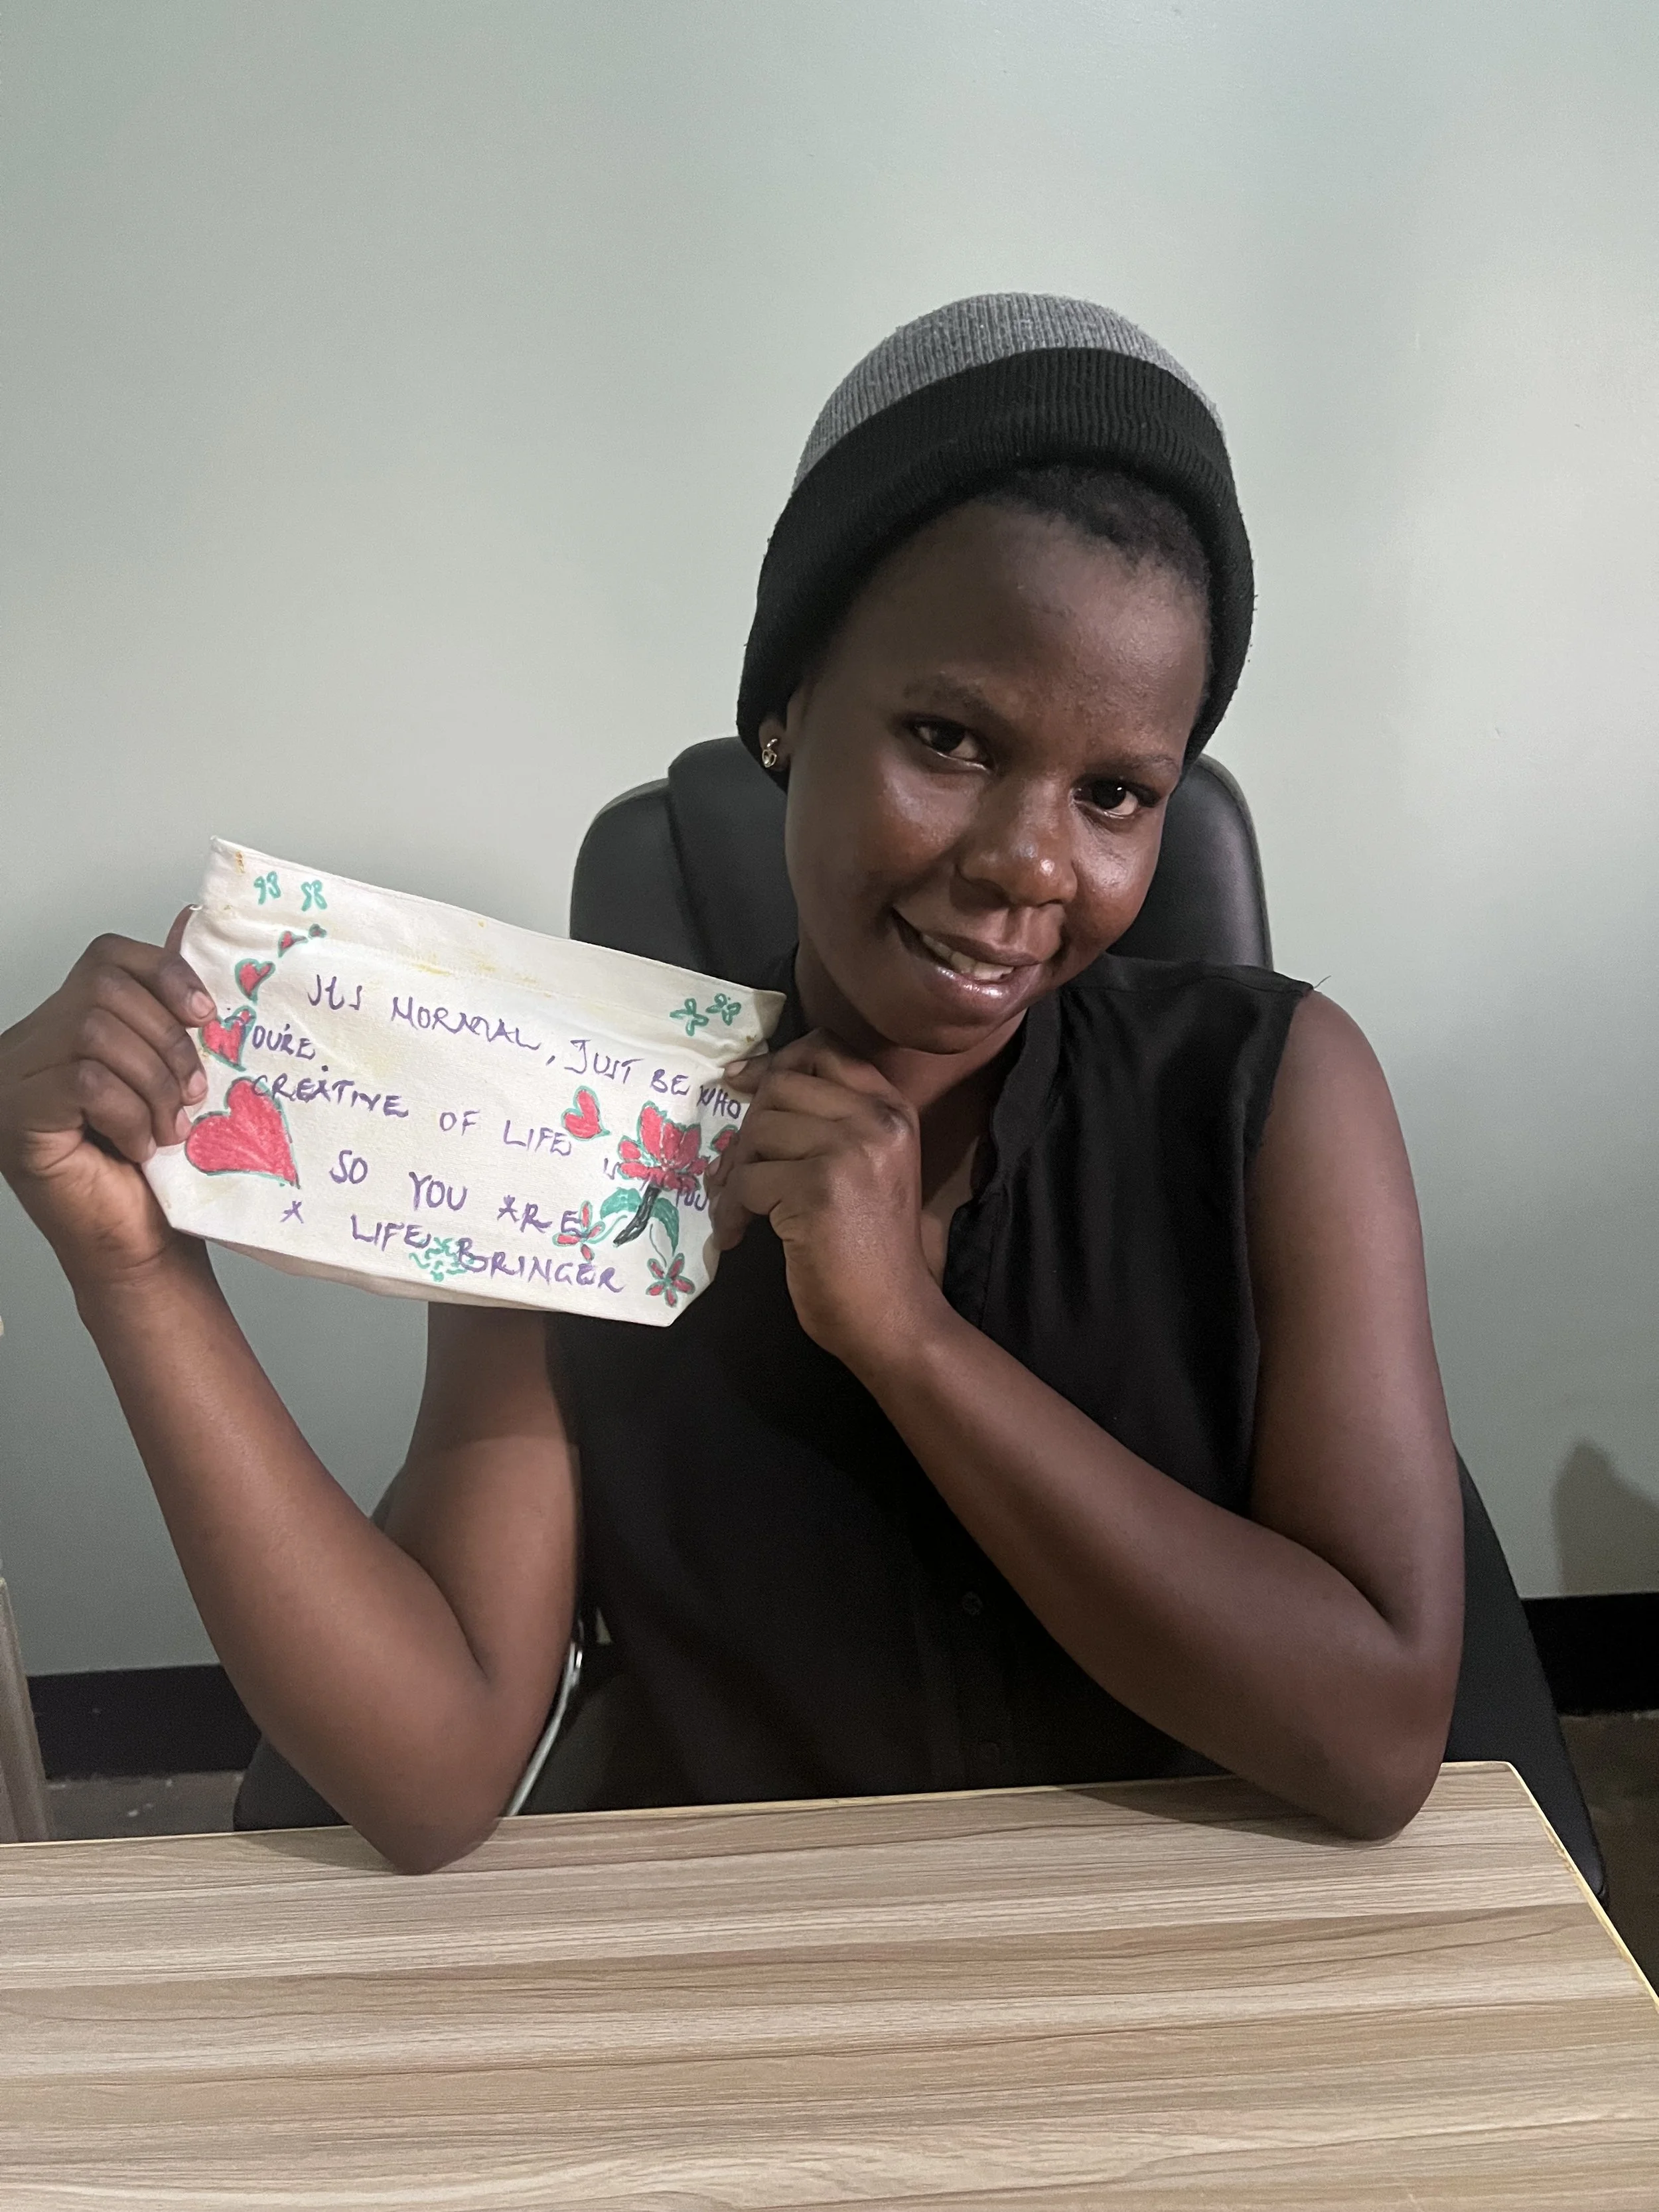 ITS NORMAL, JUST BE WHO
YOU'RE
CREATIVE OF LIFE IS IN YOU
SO YOU ARE
A LIFE BRINGER